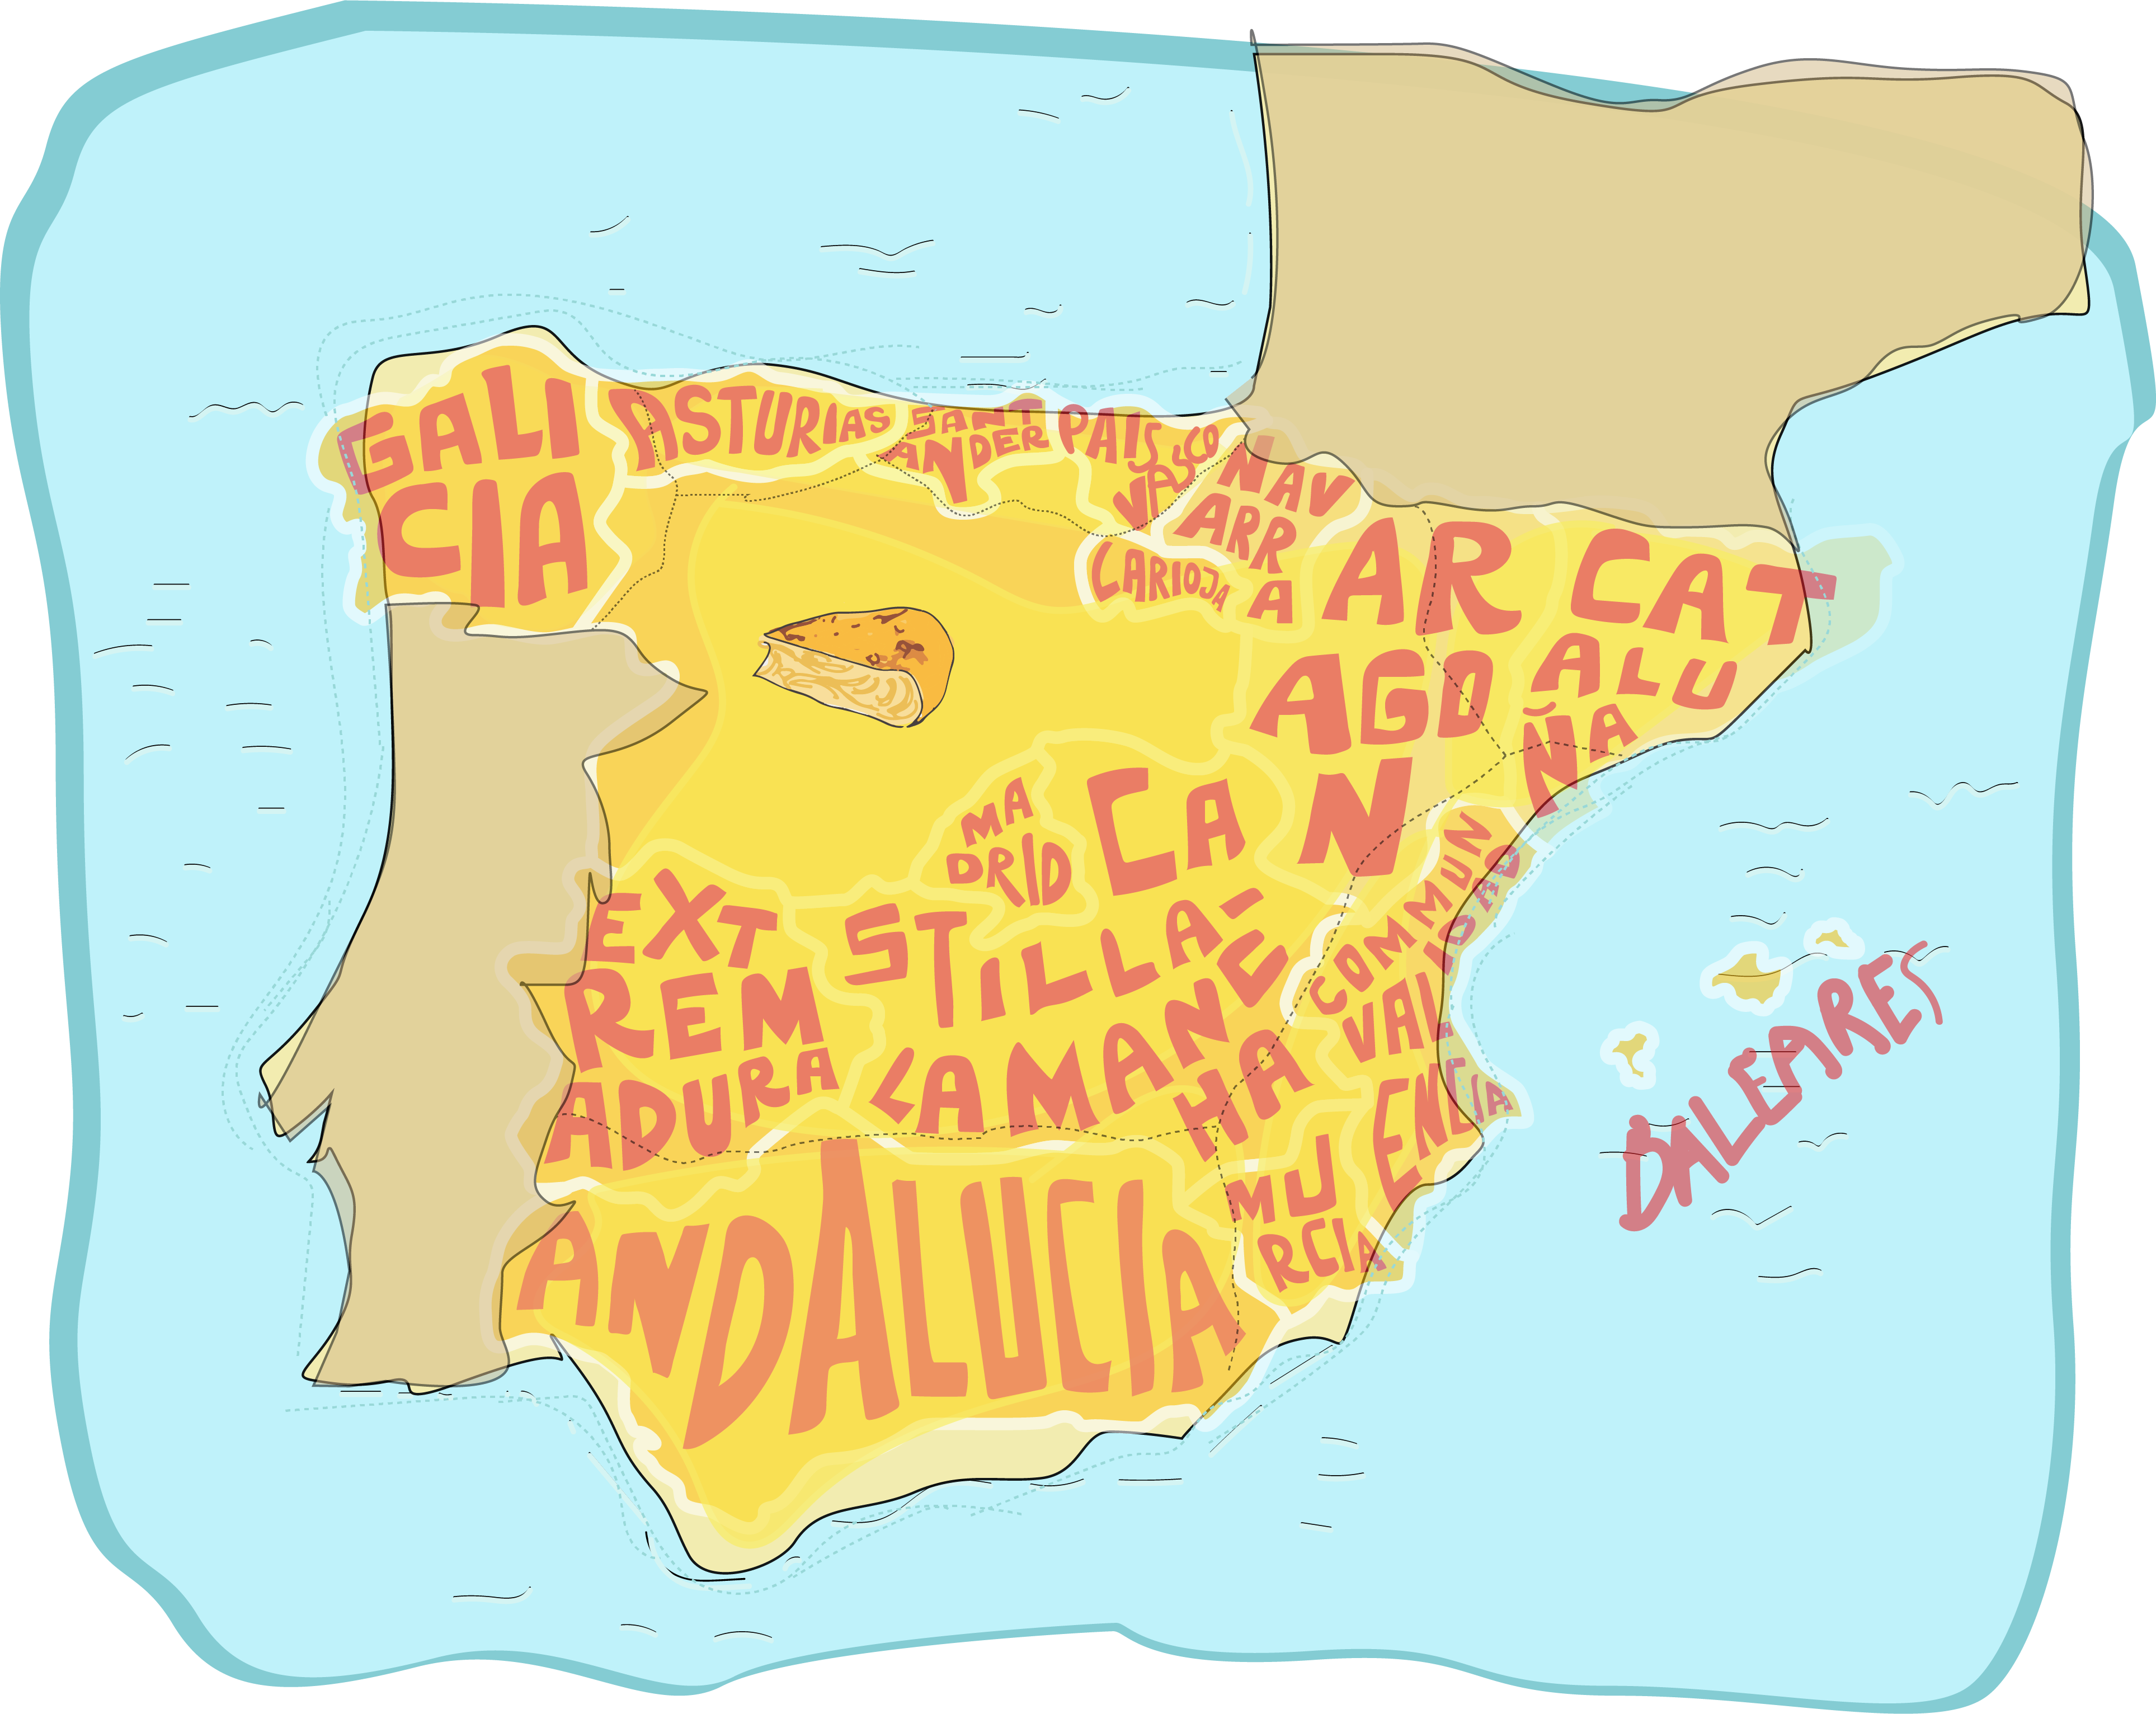 GALI
CIA
ASTURIAS
SANT
ANDER
PAIS
VASCO
NAV
ARR
A
LARIOJA
AR
AGO
N
CAT
ALU
ÑA
MA
DRID
CA
STILLA-
LA MANCHA
EXT
REM
ADURA
COMMUNI
DAD
VAL
ENCIA
MU
RCIA
ANDALUCIA
BALEARES